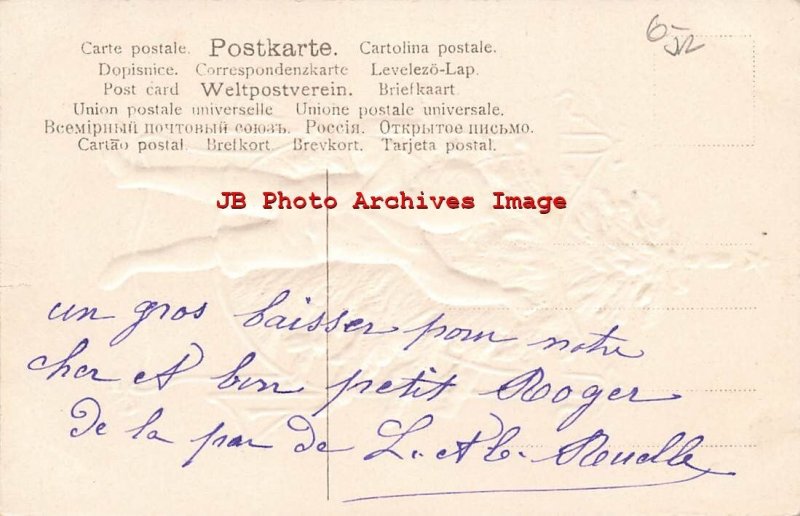 Carte postale. Postkarte. Cartolina postale.
Dopisnice. Correspondenzkarte Levelezö-Lap.
Post card Weltpostverein. Briefkaart.
Union postale universelle Unione postale universale.
Всемірный почтовый союзъ. Россія. Открытое письмо.
Cartão postal. Brefkort. Brevkort. Tarjeta postal.
JB Photo Archives Image
un gros baisser pour notre
cher et bon petit Roger
de la par de L. Ruelle